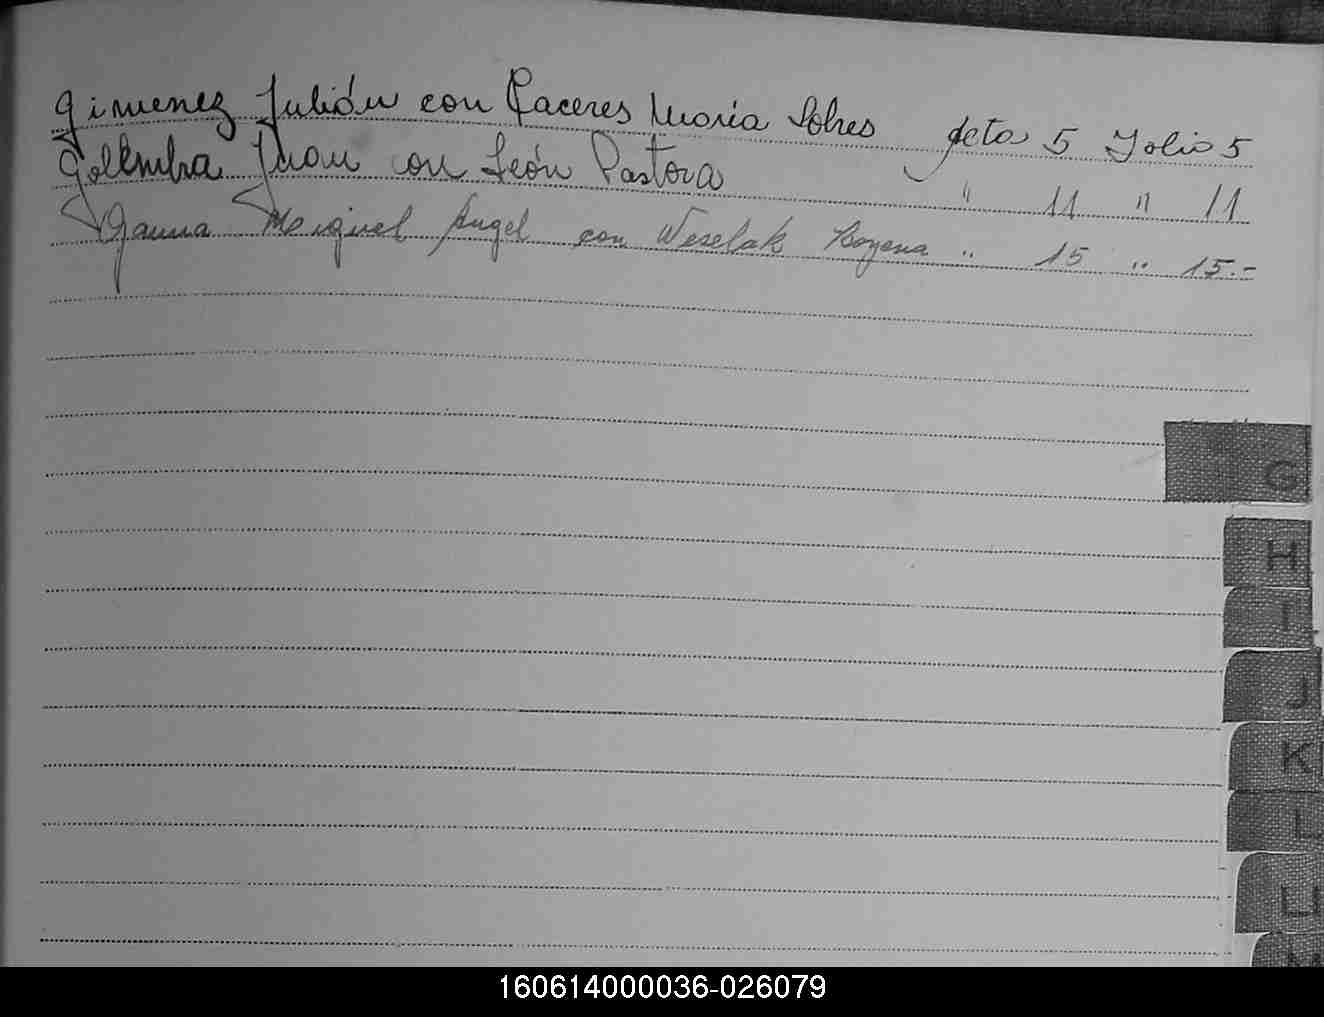 Gimenez Julián con Caceres María Solres Acta 5 Folio 5
Golemba Juan con León Pastora " 11 " 11
Gauna Miguel Angel con Weselak Bozena " 15 " 15.-
G
H
I
J
K
L
LL
M
160614000036-026079